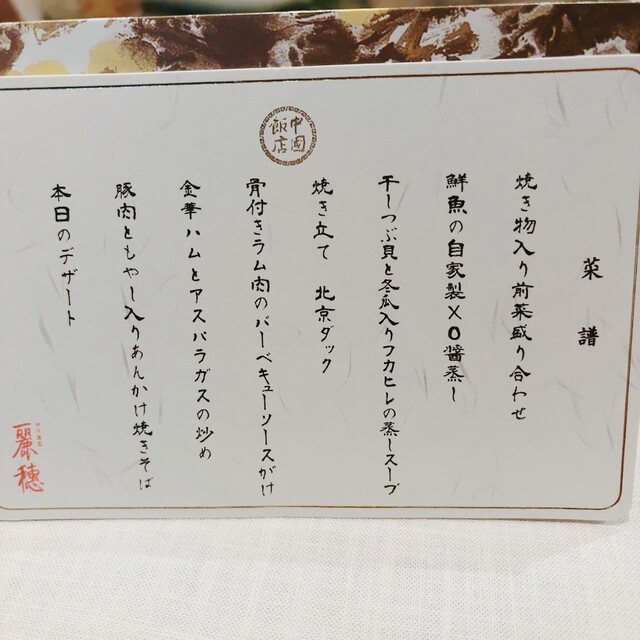 菜譜
中国飯店
焼き物入り前菜盛り合わせ
鮮魚の自家製XO醤蒸し
干しつぶ貝と冬瓜入りフカヒレの蒸しスープ
焼き立て 北京ダック
骨付きラム肉のバーベキューソースがけ
金華ハムとアスパラガスの炒め
豚肉ともやし入りあんかけ焼きそば
本日のデザート
麗穂